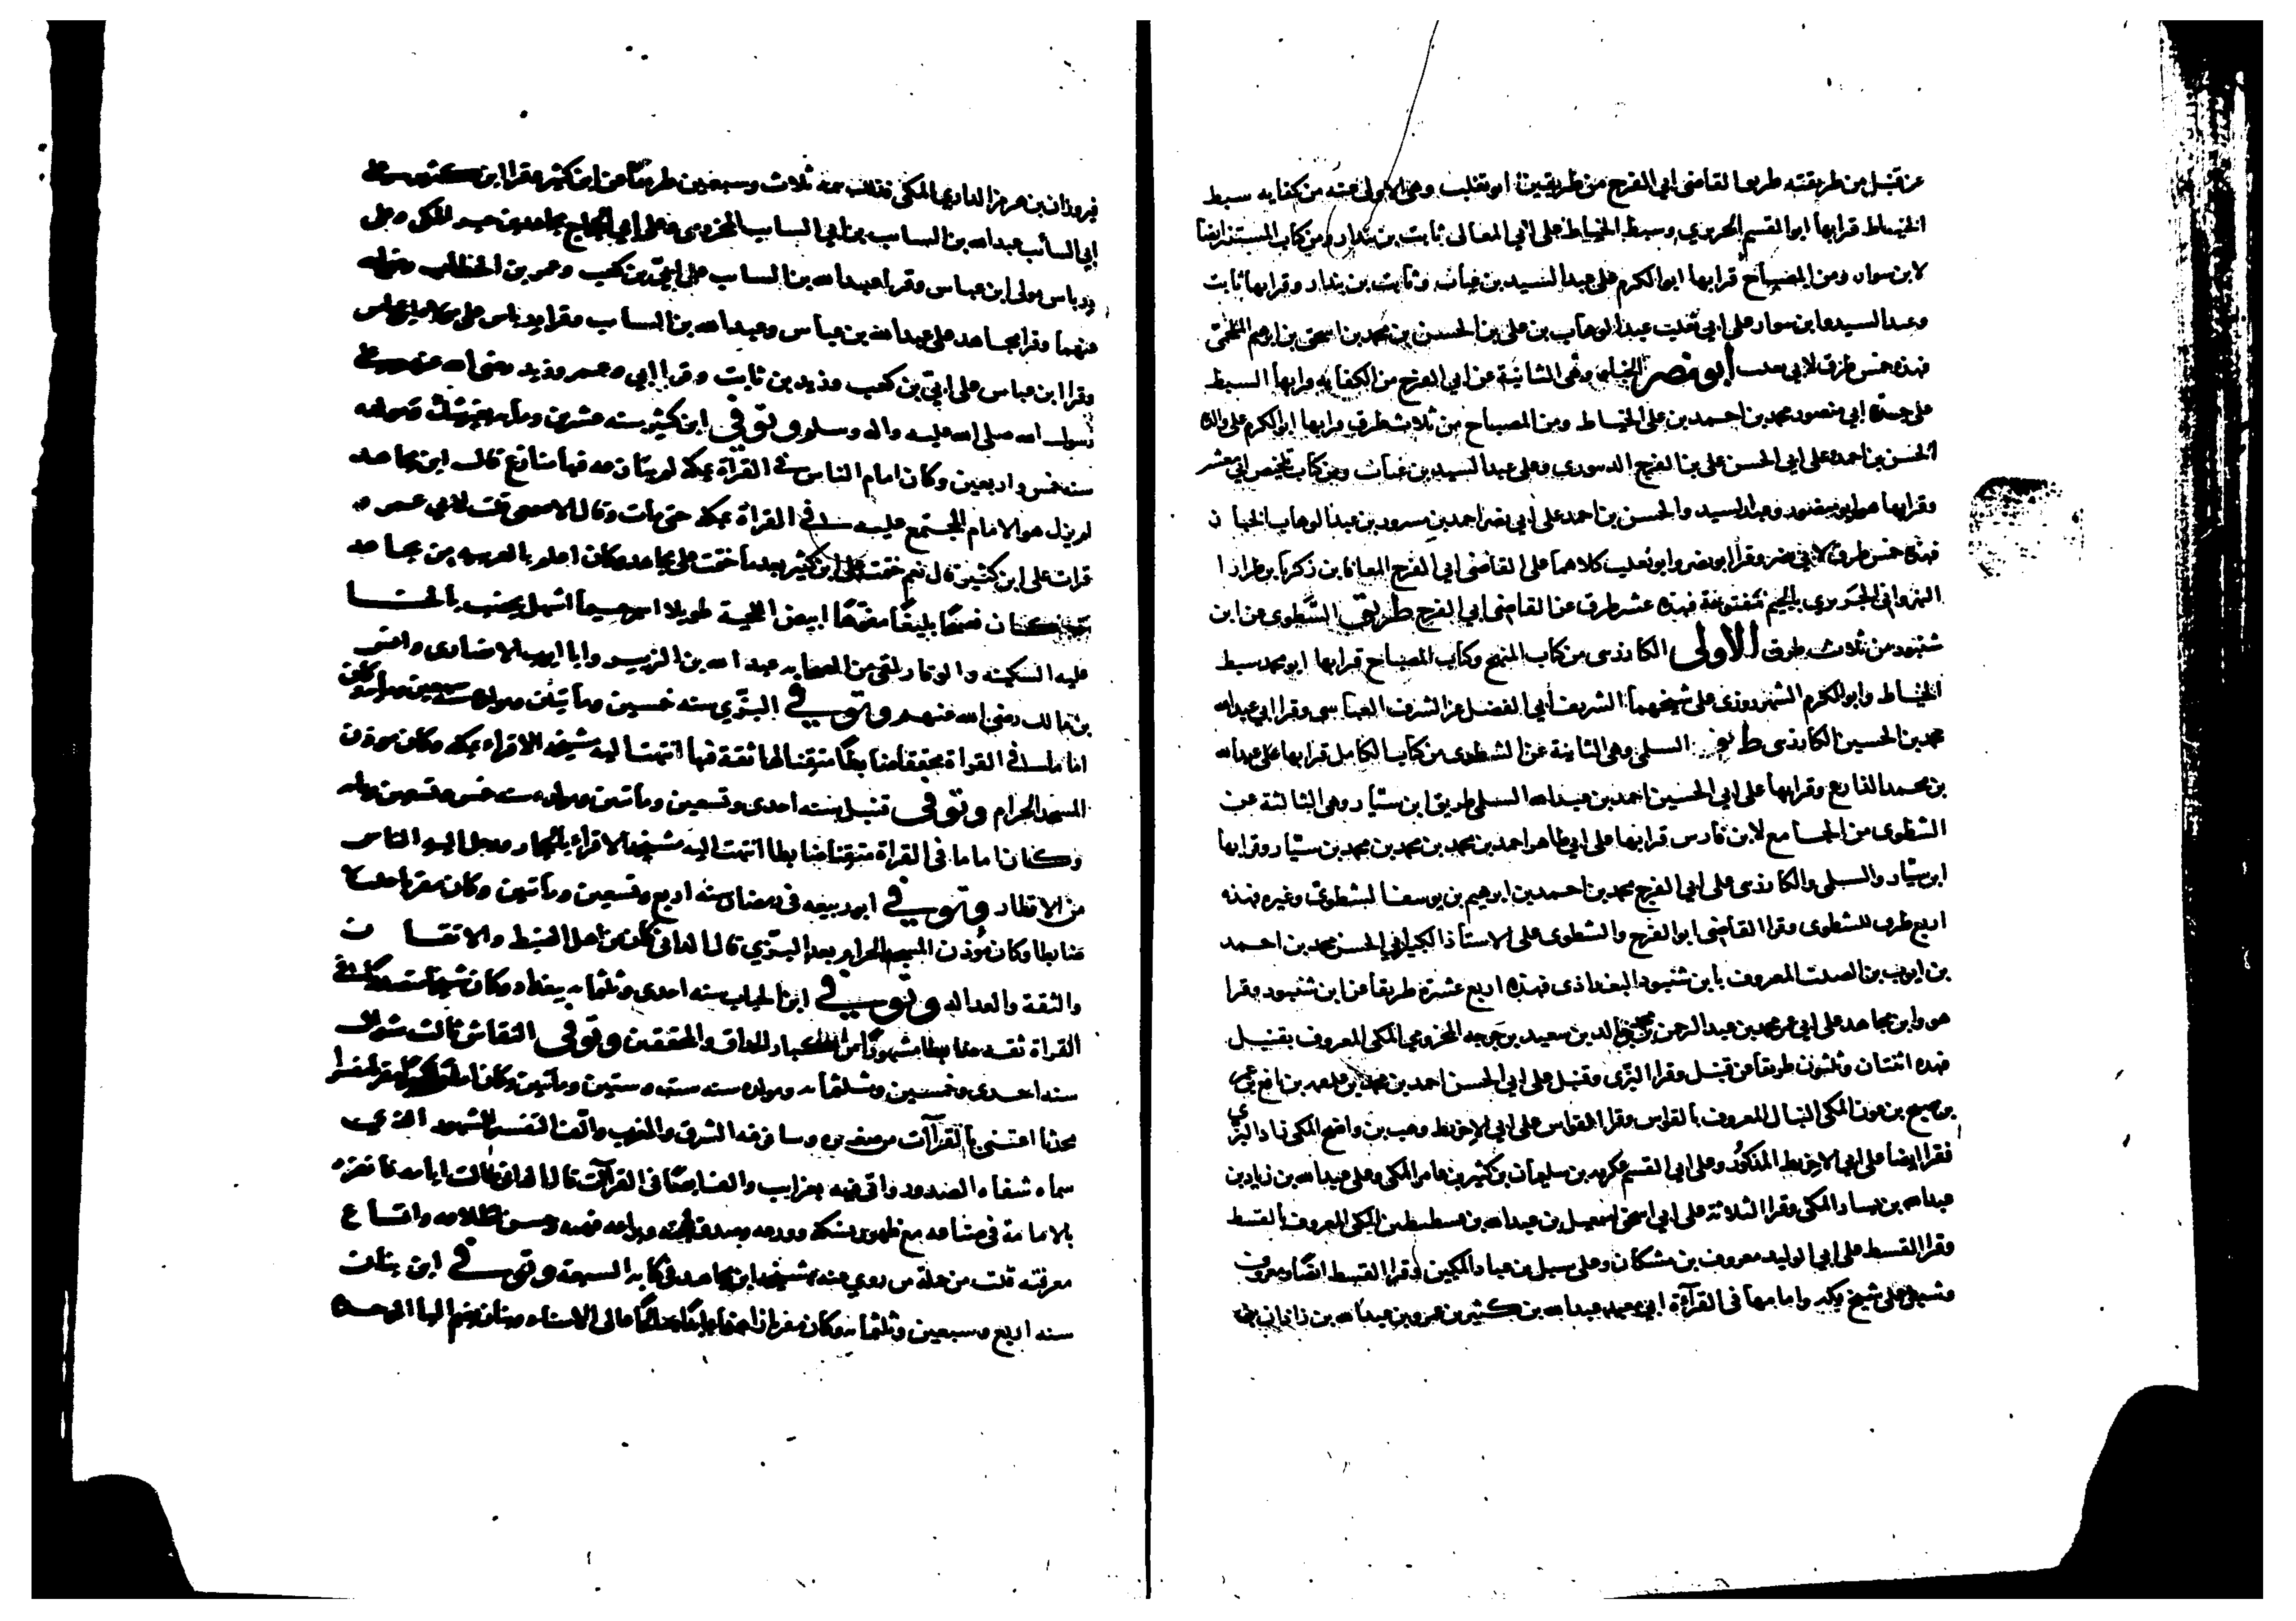 عن قنبل من طريقته طريق القاضي ابي الفرج من طريقين ابو تغلب وهي الاولى عنه من كفاية سبط
الخياط قرا بها ابو القسم الحريري وسبط الخياط على ابي المعالى ثابت بن بندار ومن كتاب المستنير ايضا
لابن سوار ومن المصباح قرا بها ابو الكرم على عبد السيد بن عتاب وثابت بن بندار وقرا بها ثابت
وعبد السيد وابن سوار على ابي تغلب عبد الوهاب بن على بن الحسن بن محمد بن اسحق بن ابرهيم الملحمى
فهذه خمس طرق لابي تغلب ابو نصر الخباز وهى الثانية عن ابي الفرج من الكفايه قرا بها السبط
على جده ابي منصور محمد بن احمد بن على الخياط ومن المصباح من ثلاث طرق قرا بها ابو الكرم على والده
الحسن بن احمد وعلى ابي الحسن على بن الفرج الدينورى وعلى عبد السيد بن عتاب ومن كتاب تلخيص ابي معشر
وقرا بها هو وابو منصور وعبد السيد والحسن بن احمد على ابي نصر احمد بن مسرور بن عبد الوهاب الخباز
فهذه خمس طرق لابي نصر وقرا ابو نصر وابو تغلب كلاهما على القاضى ابي الفرج المعافا بن زكريا بن طرارا
النهروانى الجريري بالجيم مفتوحة فهذه عشر طرق عن القاضى ابي الفرج طريق الشطوى عن ابن
شنبوذ من ثلاث طرق الاولى الكارزينى من كتاب المبهج وكتاب المصباح قرا بها ابو محمد سبط
الخياط وابو الكرم الشهرزورى على شيخهما الشريف ابي الفضل عز الشرف العباسى وقرا ابي عبد الله
محمد بن الحسين الكارزينى طريق السلمى وهى الثانية عن الشطوى من كتاب الكامل قرا بها على عبد الله
بن محمد الذارع وقرا بها على ابي الحسين احمد بن عبد الله السلمى طريق ابن سيار وهى الثالثة عن
الشطوى من الجامع لابن فارس قرا بها على ابي طاهر احمد بن محمد بن محمد بن محمد بن سيار وقرا بها
ابن سيار والسلمى والكارزينى على ابي الفرج محمد بن احمد بن ابرهيم بن يوسف الشطوى وغيره فهذه
اربع طرق للشطوى وقرا القاضى ابو الفرج والشطوى على الاستاذ الكبير ابي الحسن محمد بن احمد
بن ايوب بن الصلت المعروف بابن شنبوذ البغداذى فهذه اربع عشرة طريقا عن ابن شنبوذ وقرا
هو وابن مجاهد على ابي عمر محمد بن عبد الرحمن بن محمد بن خالد بن سعيد بن جرجه المخزومى المكى المعروف بقنبل
فهذه اثنتان وثلثون طريقا عن قنبل وقرا البزى وقنبل على ابي الحسن احمد بن محمد بن علقمه بن نافع بن عمر
بن صبيح بن عون المكى النبال المعروف بالقواس وقرا القواس على ابي الاخريط وهب بن واضح المكى زاد البزى
فقرا ايضا على ابي الاخريط المذكور وعلى ابي القسم عكرمه بن سليمان بن كثير بن عامر المكى وعلى عبد الله بن زياد بن
عبد الله بن يسار المكى وقرا الثلاثة على ابي اسحق اسمعيل بن عبد الله بن قسطنطين المكى المعروف بالقسط
وقرا القسط على ابي الوليد معروف بن مشكان وعلى شبل بن عباد المكيين وقرا القسط ايضا ومعروف
وشبل على شيخ مكه وامامها فى القرآءة ابي معبد عبد الله بن كثير بن عمرو بن عبد الله بن زاذان بن
فيروزان بن هرمز الدارى المكى فذلك ثلاث وسبعين طريقا عن ابن كثير وقرا ابن كثير على
ابي السائب عبد الله بن السائب بن ابي السائب المخزومى وعلى ابي الحجاج مجاهد بن جبر المكى وعلى
درباس مولى ابن عباس وقرا عبد الله بن السائب على ابيّ بن كعب وعمر بن الخطاب رضى الله
عنهما وقرا مجاهد على عبد الله بن عباس وعبد الله بن السائب وقرا درباس على مولاه ابن عباس
وقرا ابن عباس على ابيّ بن كعب وزيد بن ثابت وقرا ابي وعمر وزيد رضى الله عنهم على
رسول الله صلى الله عليه واله وسلم وتوفي ابن كثير سنه عشرين وماه بغير شك ومولده
سنه خمس واربعين وكان امام الناس فى القرأة بمكة لم ينازعه فيها منازع قال ابن مجاهد
لم يزل هو الامام المجتمع عليه فى القراة بمكة حتى مات وقال الاصمعى قلت لابي عمرو
قرات على ابن كثير قال نعم ختمت على ابن كثير بعد ما ختمت على مجاهد وكان اعلم بالعربيه من مجاهد
وكان فصيحا بليغا مفوها ابيض اللحية طويلا اسمر جسيما اشهل يخضب بالحنا
عليه السكينه والوقار لقى من الصحابه عبد الله بن الزبير وابا ايوب الانصارى وانس
بن مالك رضى الله عنهم وتوفي البزّي سنه خمسين ومأتين ومولده سنه سبعين وماه وكان
اماما فى القراة محققا ضابطا متقنا لها ثقة فيها انتهت اليه مشيخة الاقراء بمكة وكان موذن
المسجد الحرام وتوفي قنبل سنه احدى وتسعين ومأتين ومولده سنه خمس وتسعين وماه
وكان اماما فى القراة متقنا ضابطا انتهت اليه مشيخة الاقراء بالحجاز ورحل اليه الناس
من الاقطار وتوفي ابو ربيعه فى رمضان سنه اربع وتسعين ومأتين وكان مقريا جليلا
ضابطا وكان مؤذن المسجد الحرام بعد البزّي قال الدانى كان من اهل الضبط والاتقان
والثقة والعداله وتوفي ابن الحباب سنه احدى وثلثمايه ببغداد وكان شيخا متصدرا فى
القراة ثقه ضابطا مشهورا من كبار الحذاق والمحققين وتوفي النقاش ثالث شوال
سنه احدى وخمسين وثلثمايه ومولده سنه ست وستين ومأتين وكان اماما كبيرا مقريا مفسرا
محدثا اعتنى بالقرآات من صغره وسافر فيه الشرق والغرب والف التفسير المشهور الذى
سماه شفاء الصدور واتى فيه بغرايب والف ايضا فى القرآات قال الدانى طالت ايامه فانفرد
بالامامة فى صناعته مع ظهور نسكه وورعه وصدق لهجته وبراعه فهمه وحسن اطلاعه واتساع
معرفته قلت من جلة من روى عنه شيخه ابن مجاهد فى كتابه السبعة وتوفي ابن بنان
سنه اربع وسبعين وثلثمايه وكان مقريا زاهدا عابدا صالحا عالى الاسناد وبنان بضم البا الموحده